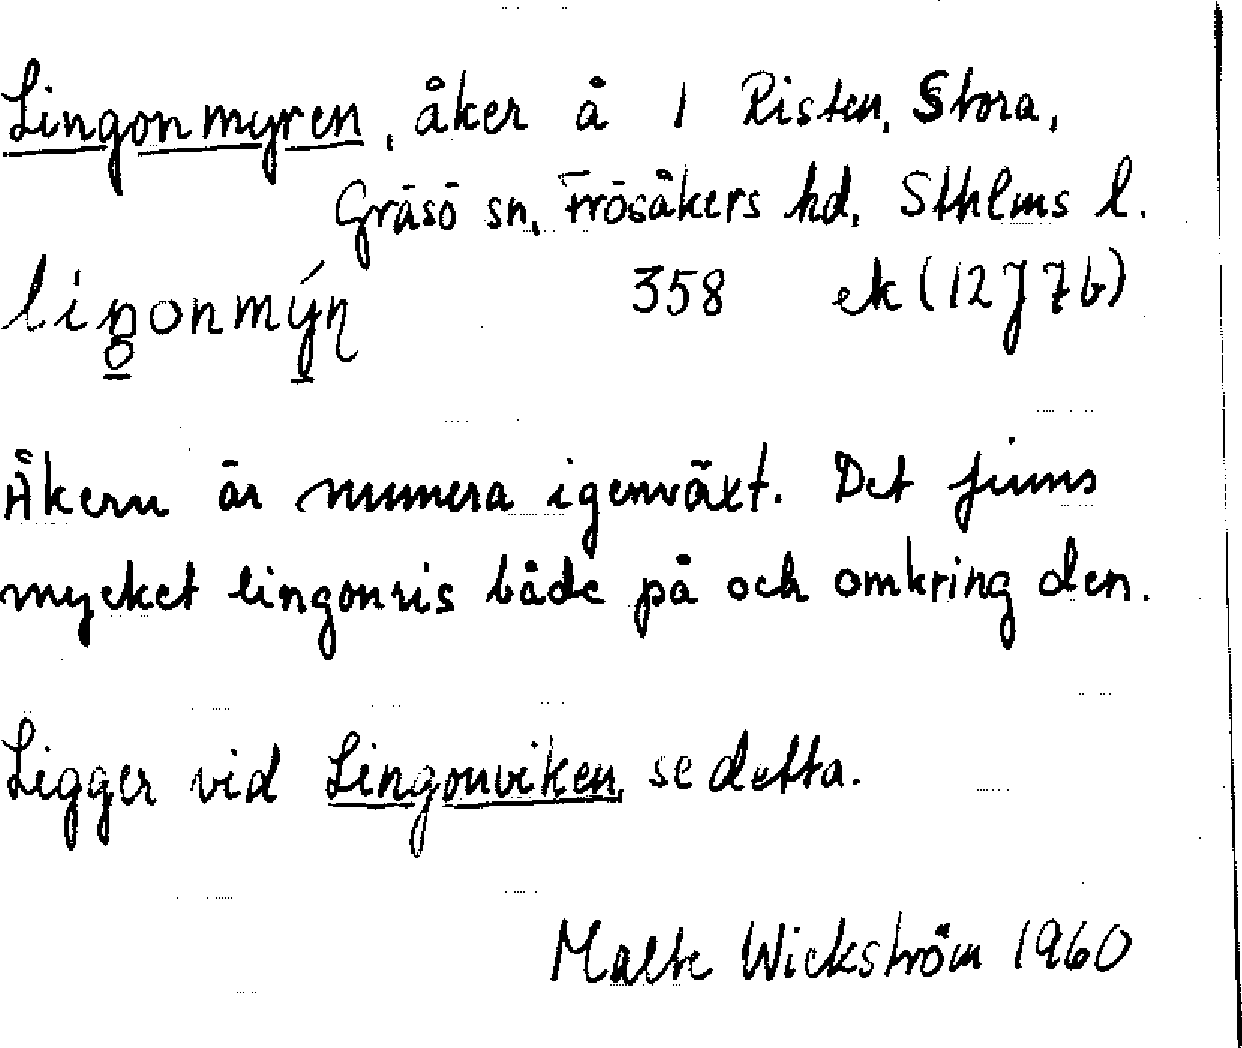 Lingonmyren, åker å 1 Risten, Stora,
Gräsö sn, Frösåkers hd, Sthlms l.
358 ek (12J7b)
Åkern är numera igenväxt. Det finns
mycket lingonris både på och omkring den.
Ligger vid Lingonviken, se detta.
Malte Wickström 1960